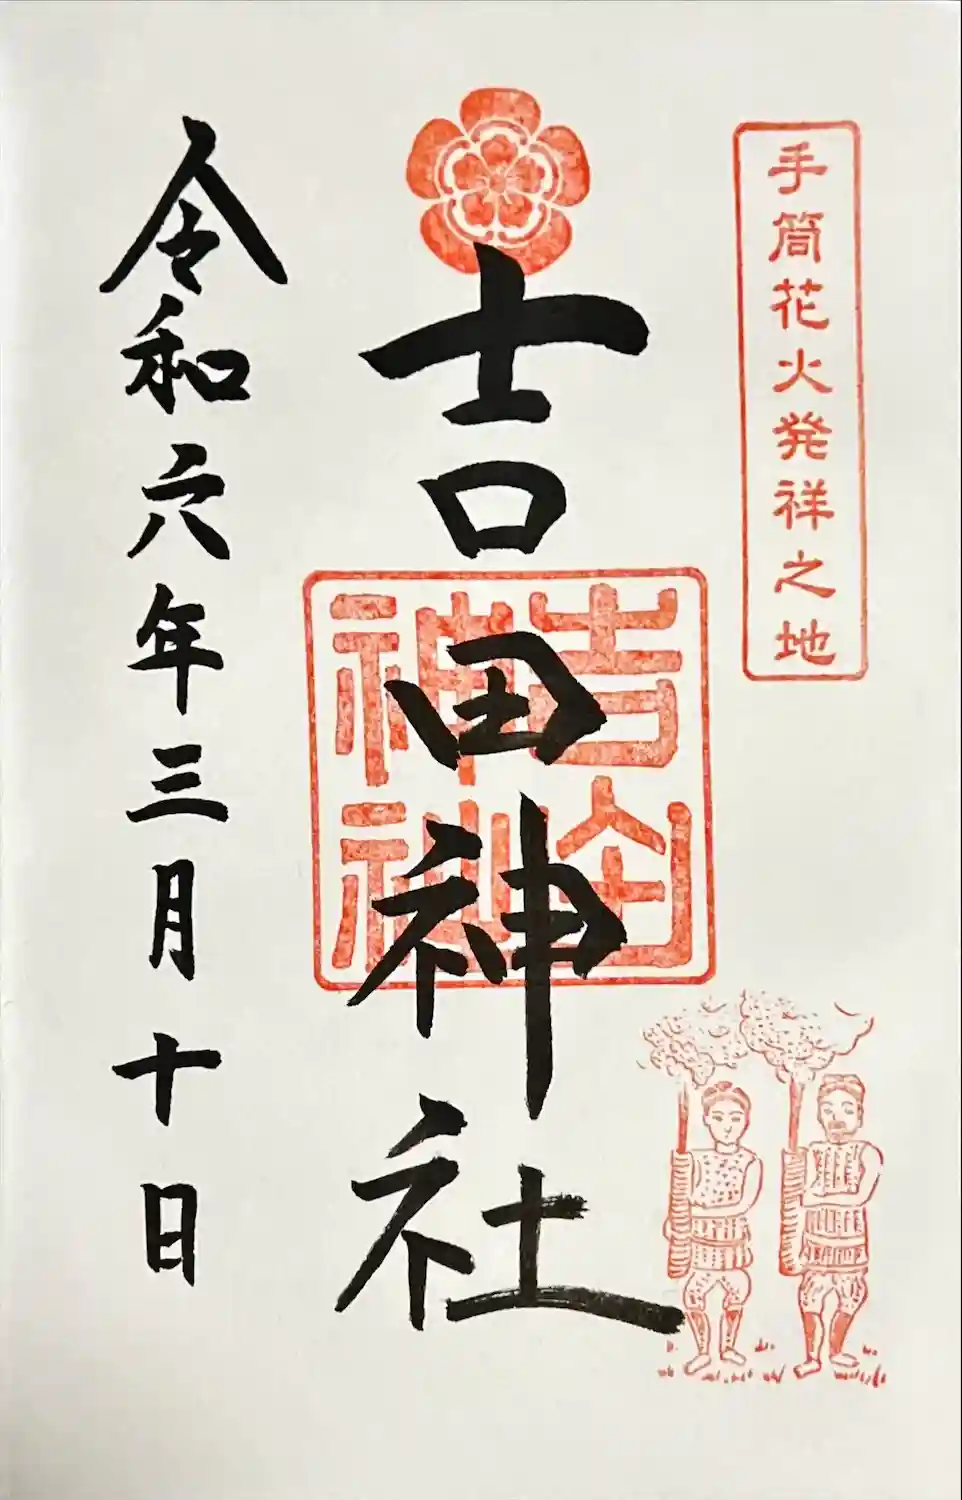 手筒花火発祥之地
吉田神社
吉田
神社
令和六年三月十日